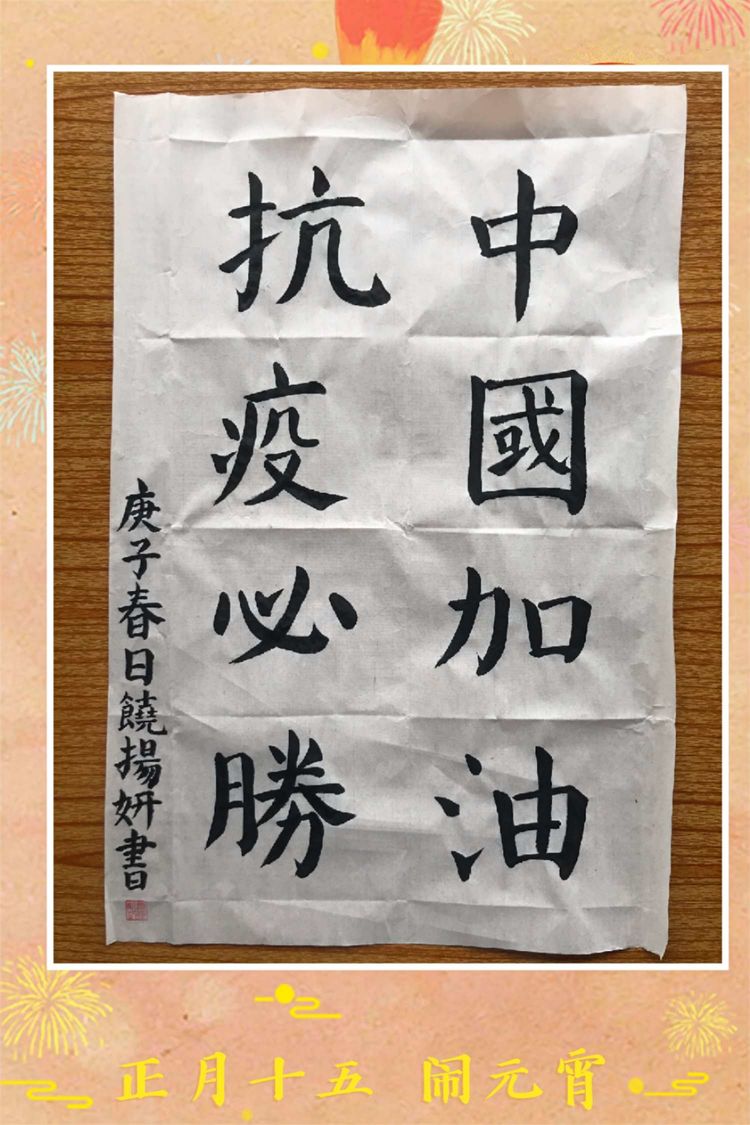 中國加油
抗疫必勝
庚子春日饒揚妍書
正月十五 闹元宵